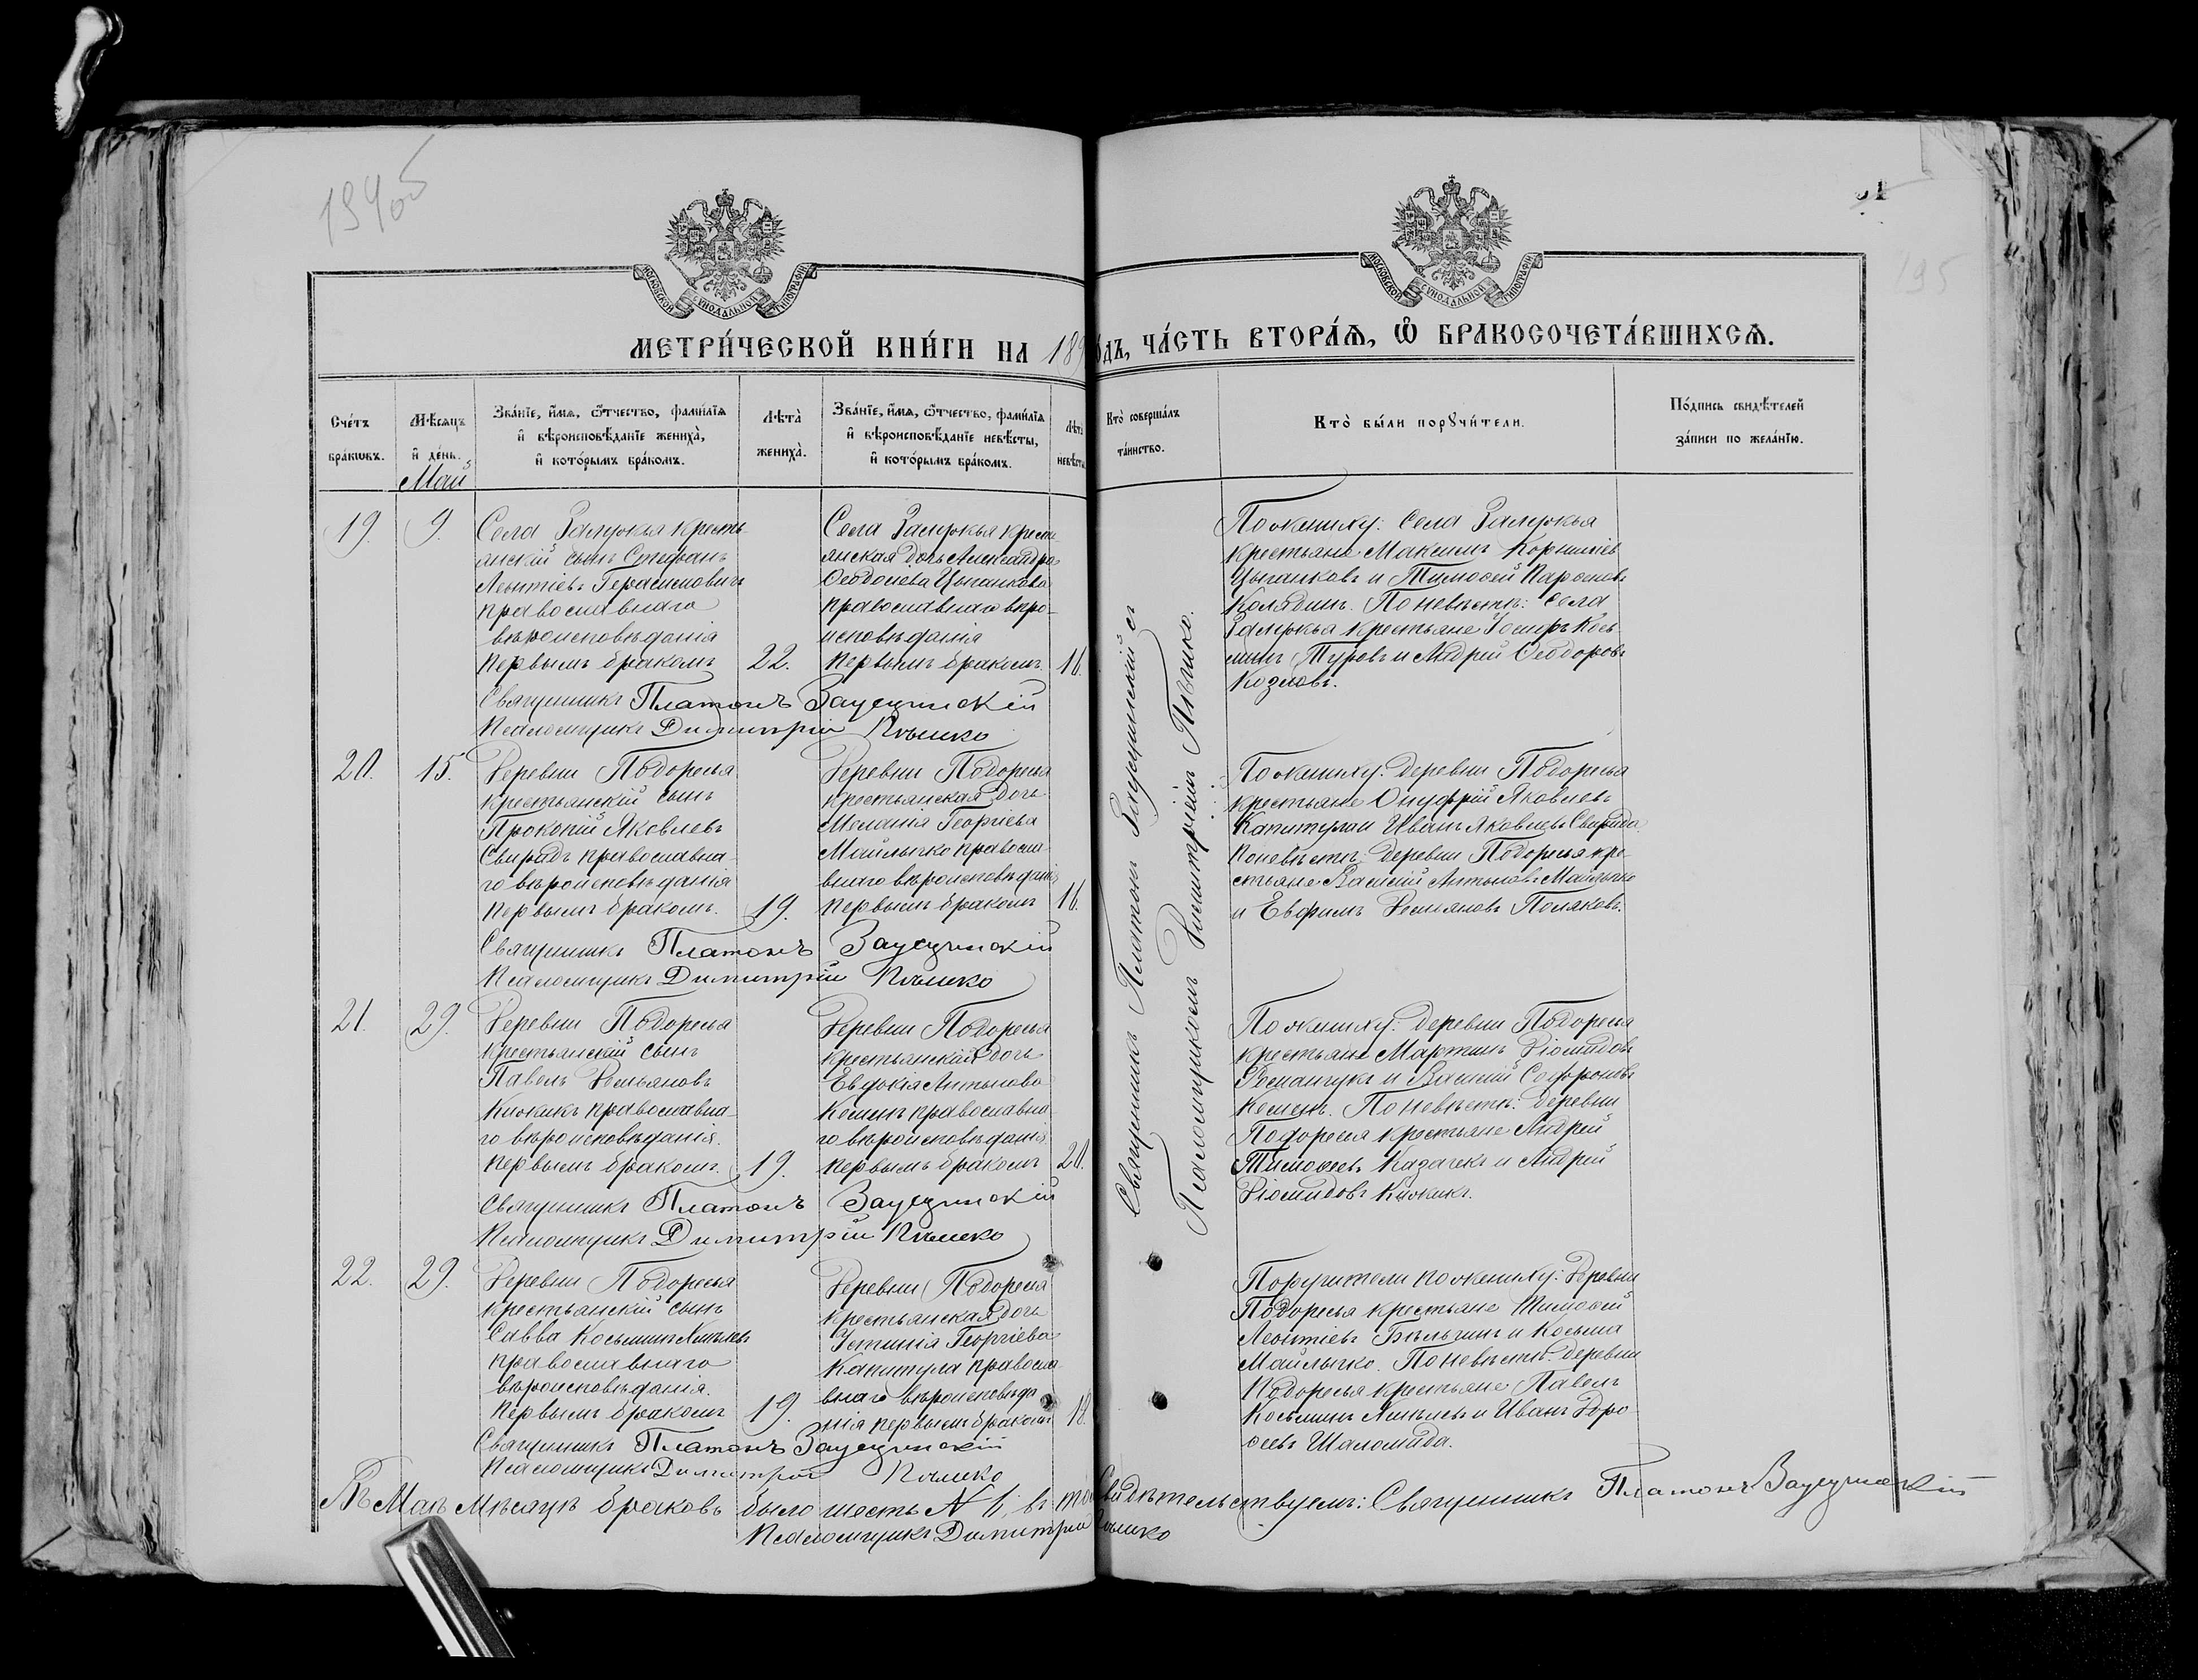 19405
95
МОСКОВСКОЙ СѴНОДАЛЬНОЙ ТИПОГРАФІИ
МОСКОВСКОЙ СѴНОДАЛЬНОЙ ТИПОГРАФІИ
МЕТРИ́ЧЕСКОЙ КНИ́ГИ НА 189 ДЪ, ЧА́СТЬ ВТОРА́Ѧ, Ѿ БРАКОСОЧЕТА́ВШИХСѦ.
Сче́тъ
бра́кѡвъ.
Мѣ́сѧцъ
и҆ де́нь.
Май
Зва́нїе, и҆́мѧ, ѻ҆́тчество, фами́лїѧ
и҆ вѣроисповѣ́данїе жениха̀,
и҆ кото́рымъ бра́комъ.
Лѣ́та
жениха̀.
Зва́нїе, и҆́мѧ, ѻ҆́тчество, фами́лїѧ
и҆ вѣроисповѣ́данїе невѣ́сты,
и҆ кото́рымъ бра́комъ.
Лѣ́та
невѣ́сты
Кто̀ соверша́лъ
та́инство.
Кто̀ бы́ли порꙋчи́тели.
По́дпись свидѣ́телей
за́писи по жела́нїю.
19.
9.
Села Залужья кресть-
янскій сынъ Стефанъ
Леонтіевъ Герасимовичъ
православнаго
вѣроисповѣданія
первымъ бракомъ
22.
Села Залужья кресть
янская дочь Александра
Ѳеодонова Цыганкова
православнаго вѣро-
исповѣданія
первымъ бракомъ.
16.
По жениху: села Залужья
крестьяне Максимъ Корнилиев
Цыганковъ и Тимоѳей Парѳеновъ
Колядичъ. По невѣстѣ: села
Залужья крестьяне Іосифъ Кось-
минъ Туровъ и Андрей Ѳеодоровъ
Козловъ.
Священникъ Платонъ Заусцинскій
Псаломщикъ Димитрій Пѣшко
20.
15.
Деревни Подоресья
крестьянскій сынъ
Прокопій Яковлевъ
Свиридъ православна-
го вѣроисповѣданія
первымъ бракомъ.
19.
Деревни Подоресья
крестьянская дочь
Меланія Георгіева
Майлычко правосла-
внаго вѣроисповѣданія
первымъ бракомъ
16.
По жениху: деревни Подоресья
крестьяне Онуфрій Яковлевъ
Капитула и Иванъ Яковлевъ Свирида.
По невѣстѣ: деревни Подоресья кре-
стьяне Василій Антоновъ Майлычко
и Евфимъ Демьяновъ Поляковъ.
Священникъ Платонъ Заусцинскій
Псаломщикъ Димитрій Пѣшко
21.
29.
Деревни Подоресья
крестьянскій сынъ
Павелъ Демьяновъ
Кижикъ православна-
го вѣроисповѣданія.
первымъ бракомъ.
19.
Деревни Подоресья
крестьянская дочь
Евдокія Антонова
Кеменъ православна-
го вѣроисповѣданія.
первымъ бракомъ
20.
По жениху: деревни Подоресья
крестьяне Мартинъ Діомидовъ
Романчукъ и Василій Софроновъ
Кеменъ. По невѣстѣ: деревни
Подоресья крестьяне Андрей
Тимоѳеевъ Казачекъ и Андрей
Діомидовъ Кижикъ.
Священникъ Платонъ Заусцинскій
Псаломщикъ Димитрій Пѣшко
22.
29.
Деревни Подоресья
крестьянскій сынъ
Савва Косьминъ
православнаго
вѣроисповѣданія.
первымъ бракомъ
19.
Деревни Подоресья
крестьянская дочь
Устинія Георгіева
Капитула правосла
внаго вѣроисповѣда
нія первымъ бракомъ
18.
Поручители по жениху: деревни
Подоресья крестьяне Тимоѳей
Леонтіевъ Бѣльчинъ и Косьма
Майлычко. По невѣстѣ: деревни
Подоресья крестьяне Павелъ
Косьминъ и Иванъ Доро-
ѳеевъ Шаломида.
Священникъ Платонъ Заусцинскій
Псаломщикъ Димитрій Пѣшко
Священникъ Платонъ Заусцинскій съ
Псаломщикомъ Димитріемъ Пѣшко.
Въ Маѣ мѣсяцѣ браковъ было шесть № 6, въ томъ свидѣтельствуемъ: Священникъ Платонъ Заусцинскій
Псаломщикъ Димитрій Пѣшко